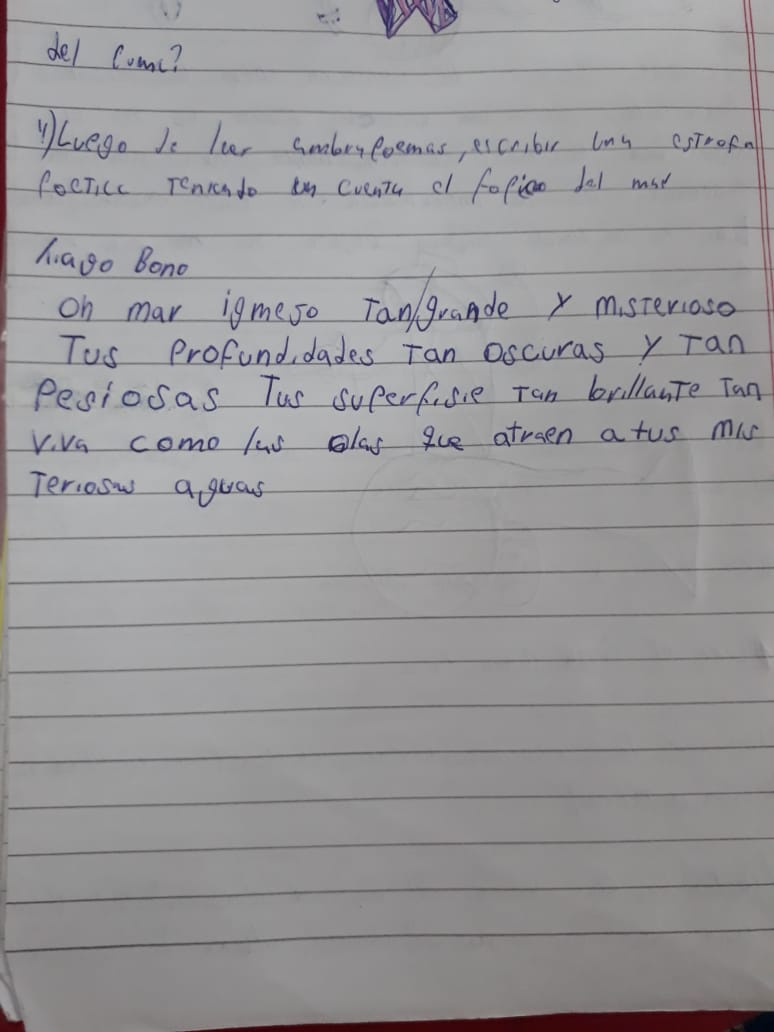 del
4) Luego de leer ambos poemas, escribir una estrofa
poetica teniendo en cuenta el topico del mar
Tiago Bono
Oh mar igmeso Tan/grande y misterioso
Tus profundidades Tan oscuras y Tan
Pesiosas Tus superfisie Tan brillante Tan
viva como las olas que atraen a tus mis
teriosas aguas